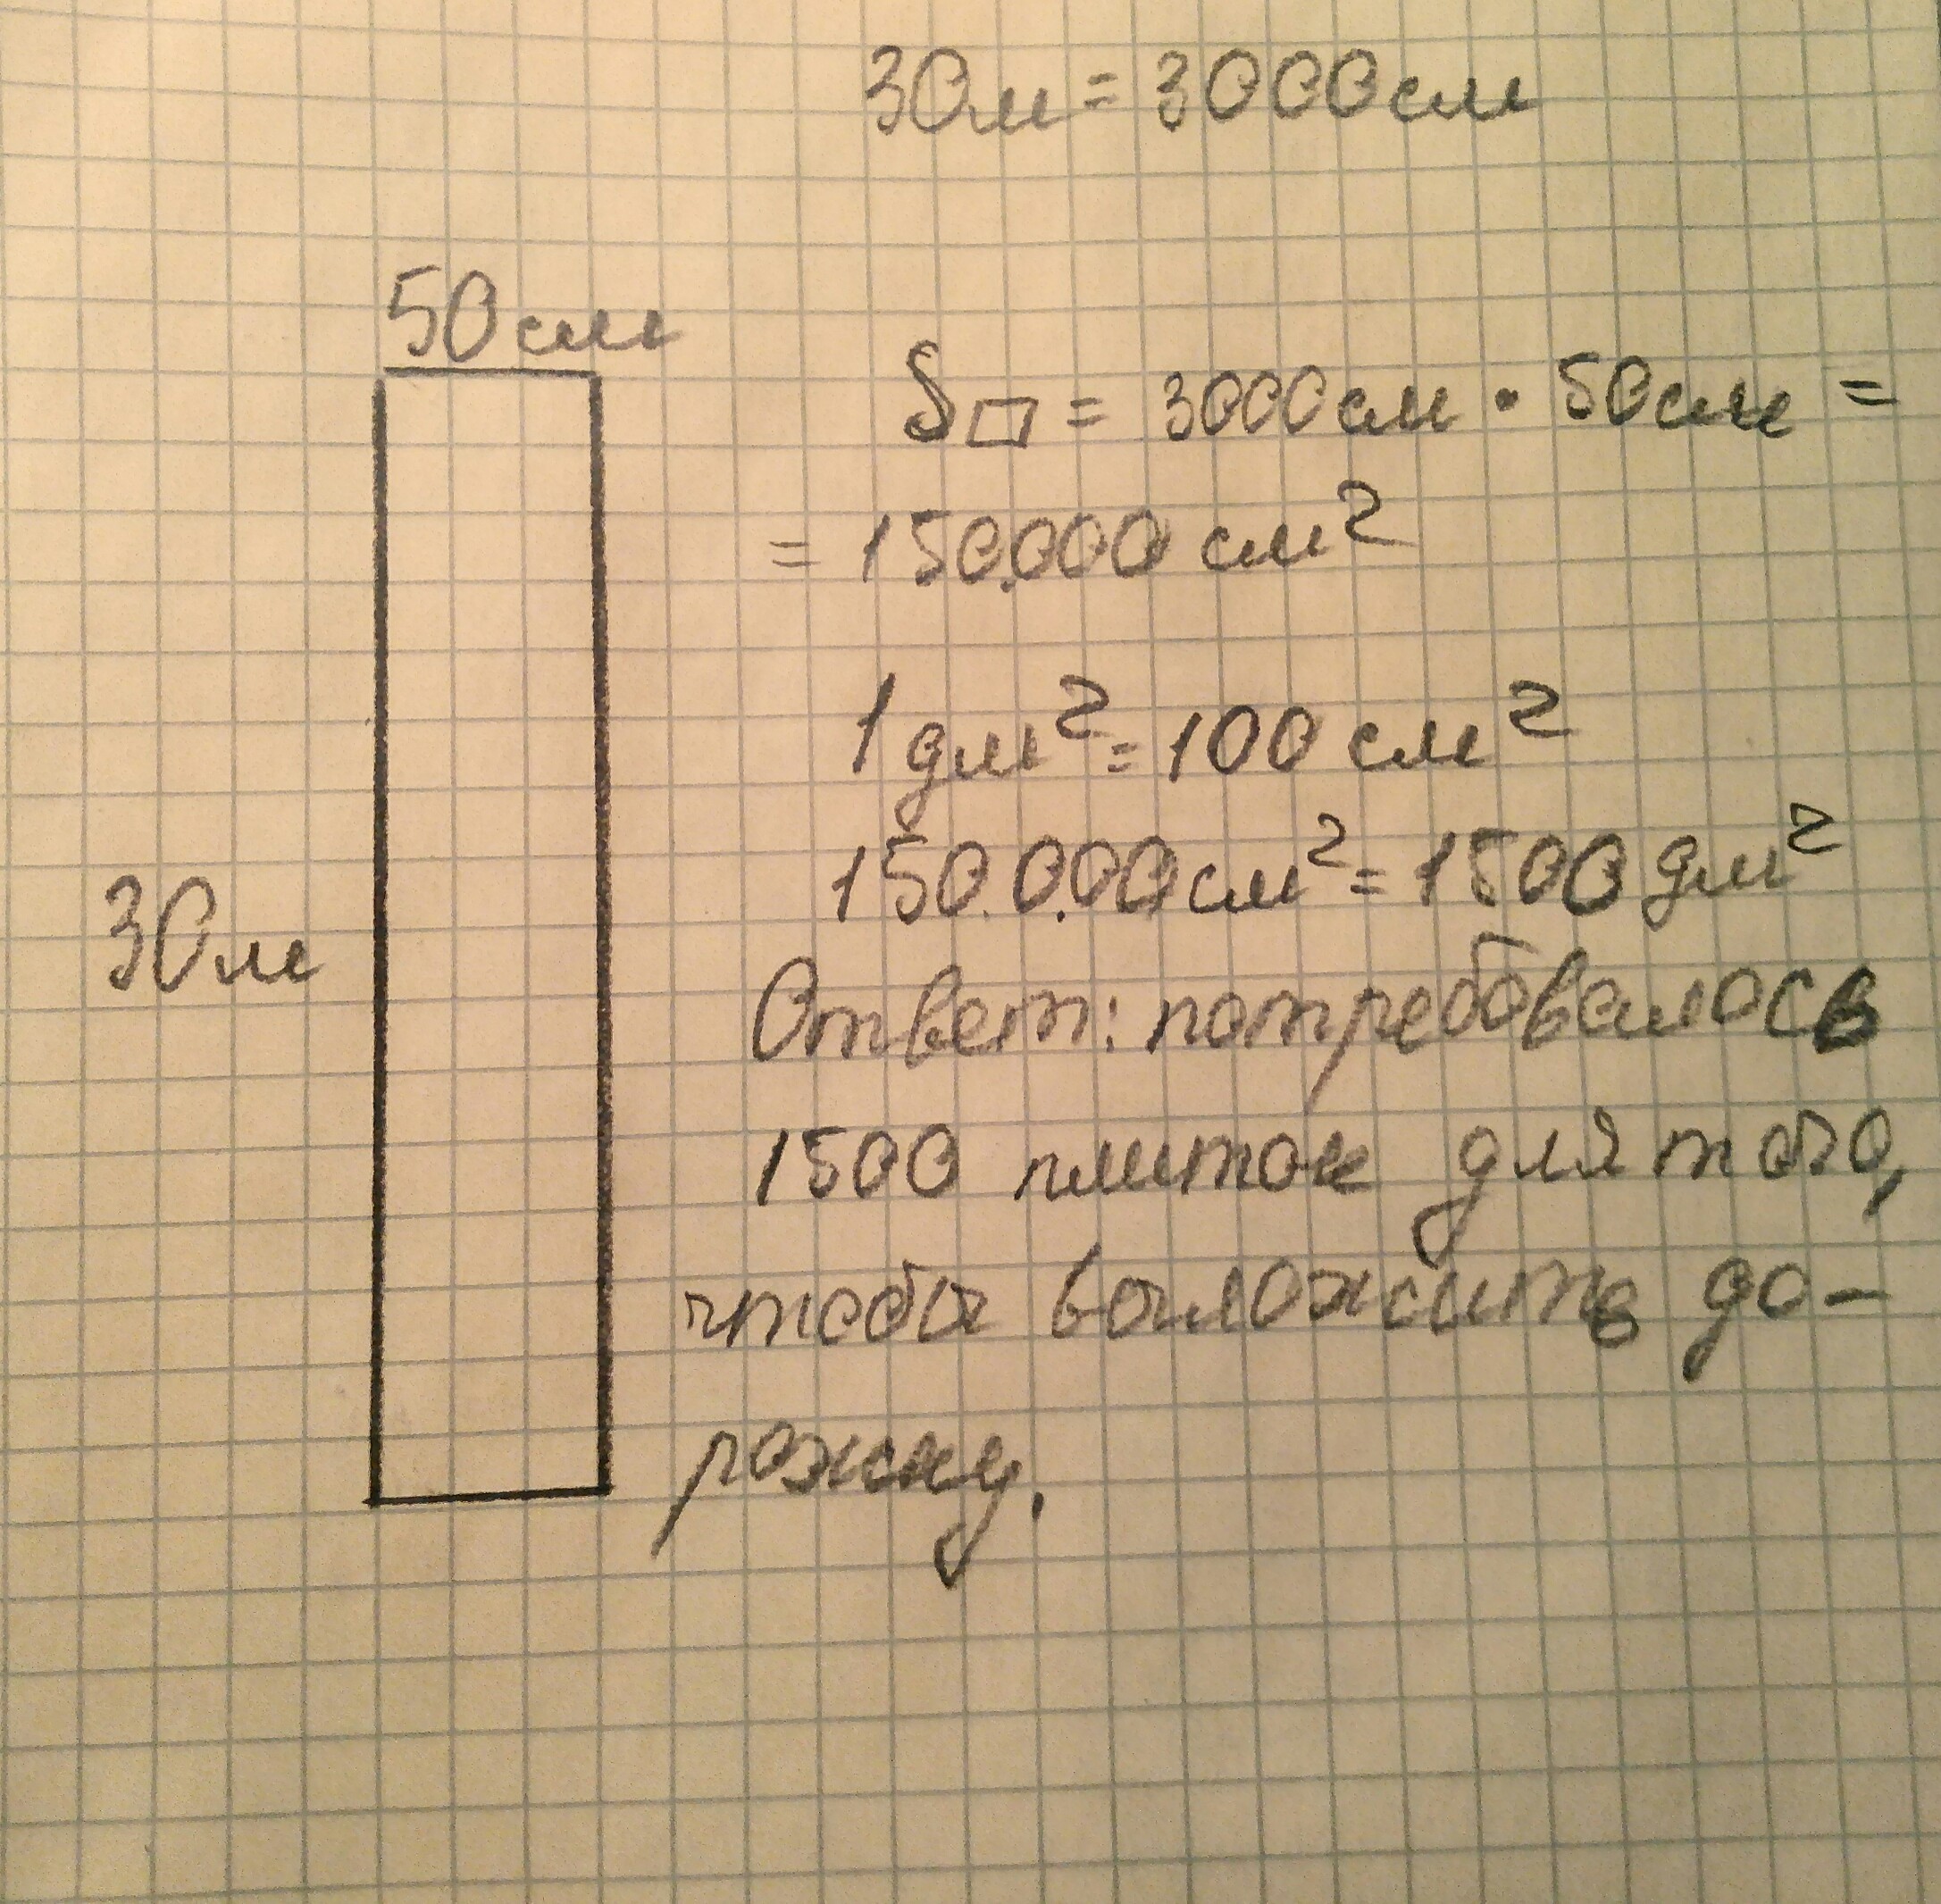 30м = 3000см
50см
S▭ = 3000см • 50см =
= 150.000 см²
1 дм² = 100 см²
150.0.00 см² = 1500 дм²
30м
Ответ: потребовалось
1500 плиток для того,
чтобы выложить до-
рожку.